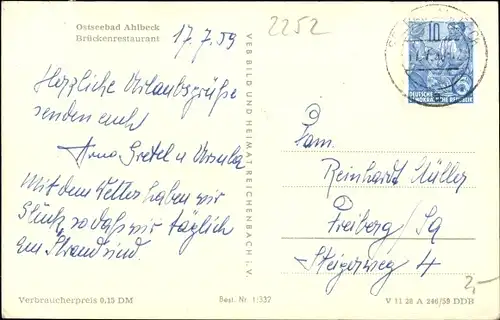 Ostseebad Ahlbeck
Brückenrestaurant
17.7.59
2252
Herzliche Urlaubsgrüße
senden euch
Arno Gretel u Ursula
Mit dem Wetter haben wir
Glück, so daß wir täglich
am Strand sind.
VEB BILD UND HEIMAT REICHENBACH I. V.
10
DEUTSCHE
DEMOKRATISCHE REPUBLIK
Fam.
Reinhardt Müller
Freiberg/Sa
Steigerweg 4
2,-
Verbraucherpreis 0,15 DM
Best. Nr. 1/332
V 11 28 A 246/59 DDR